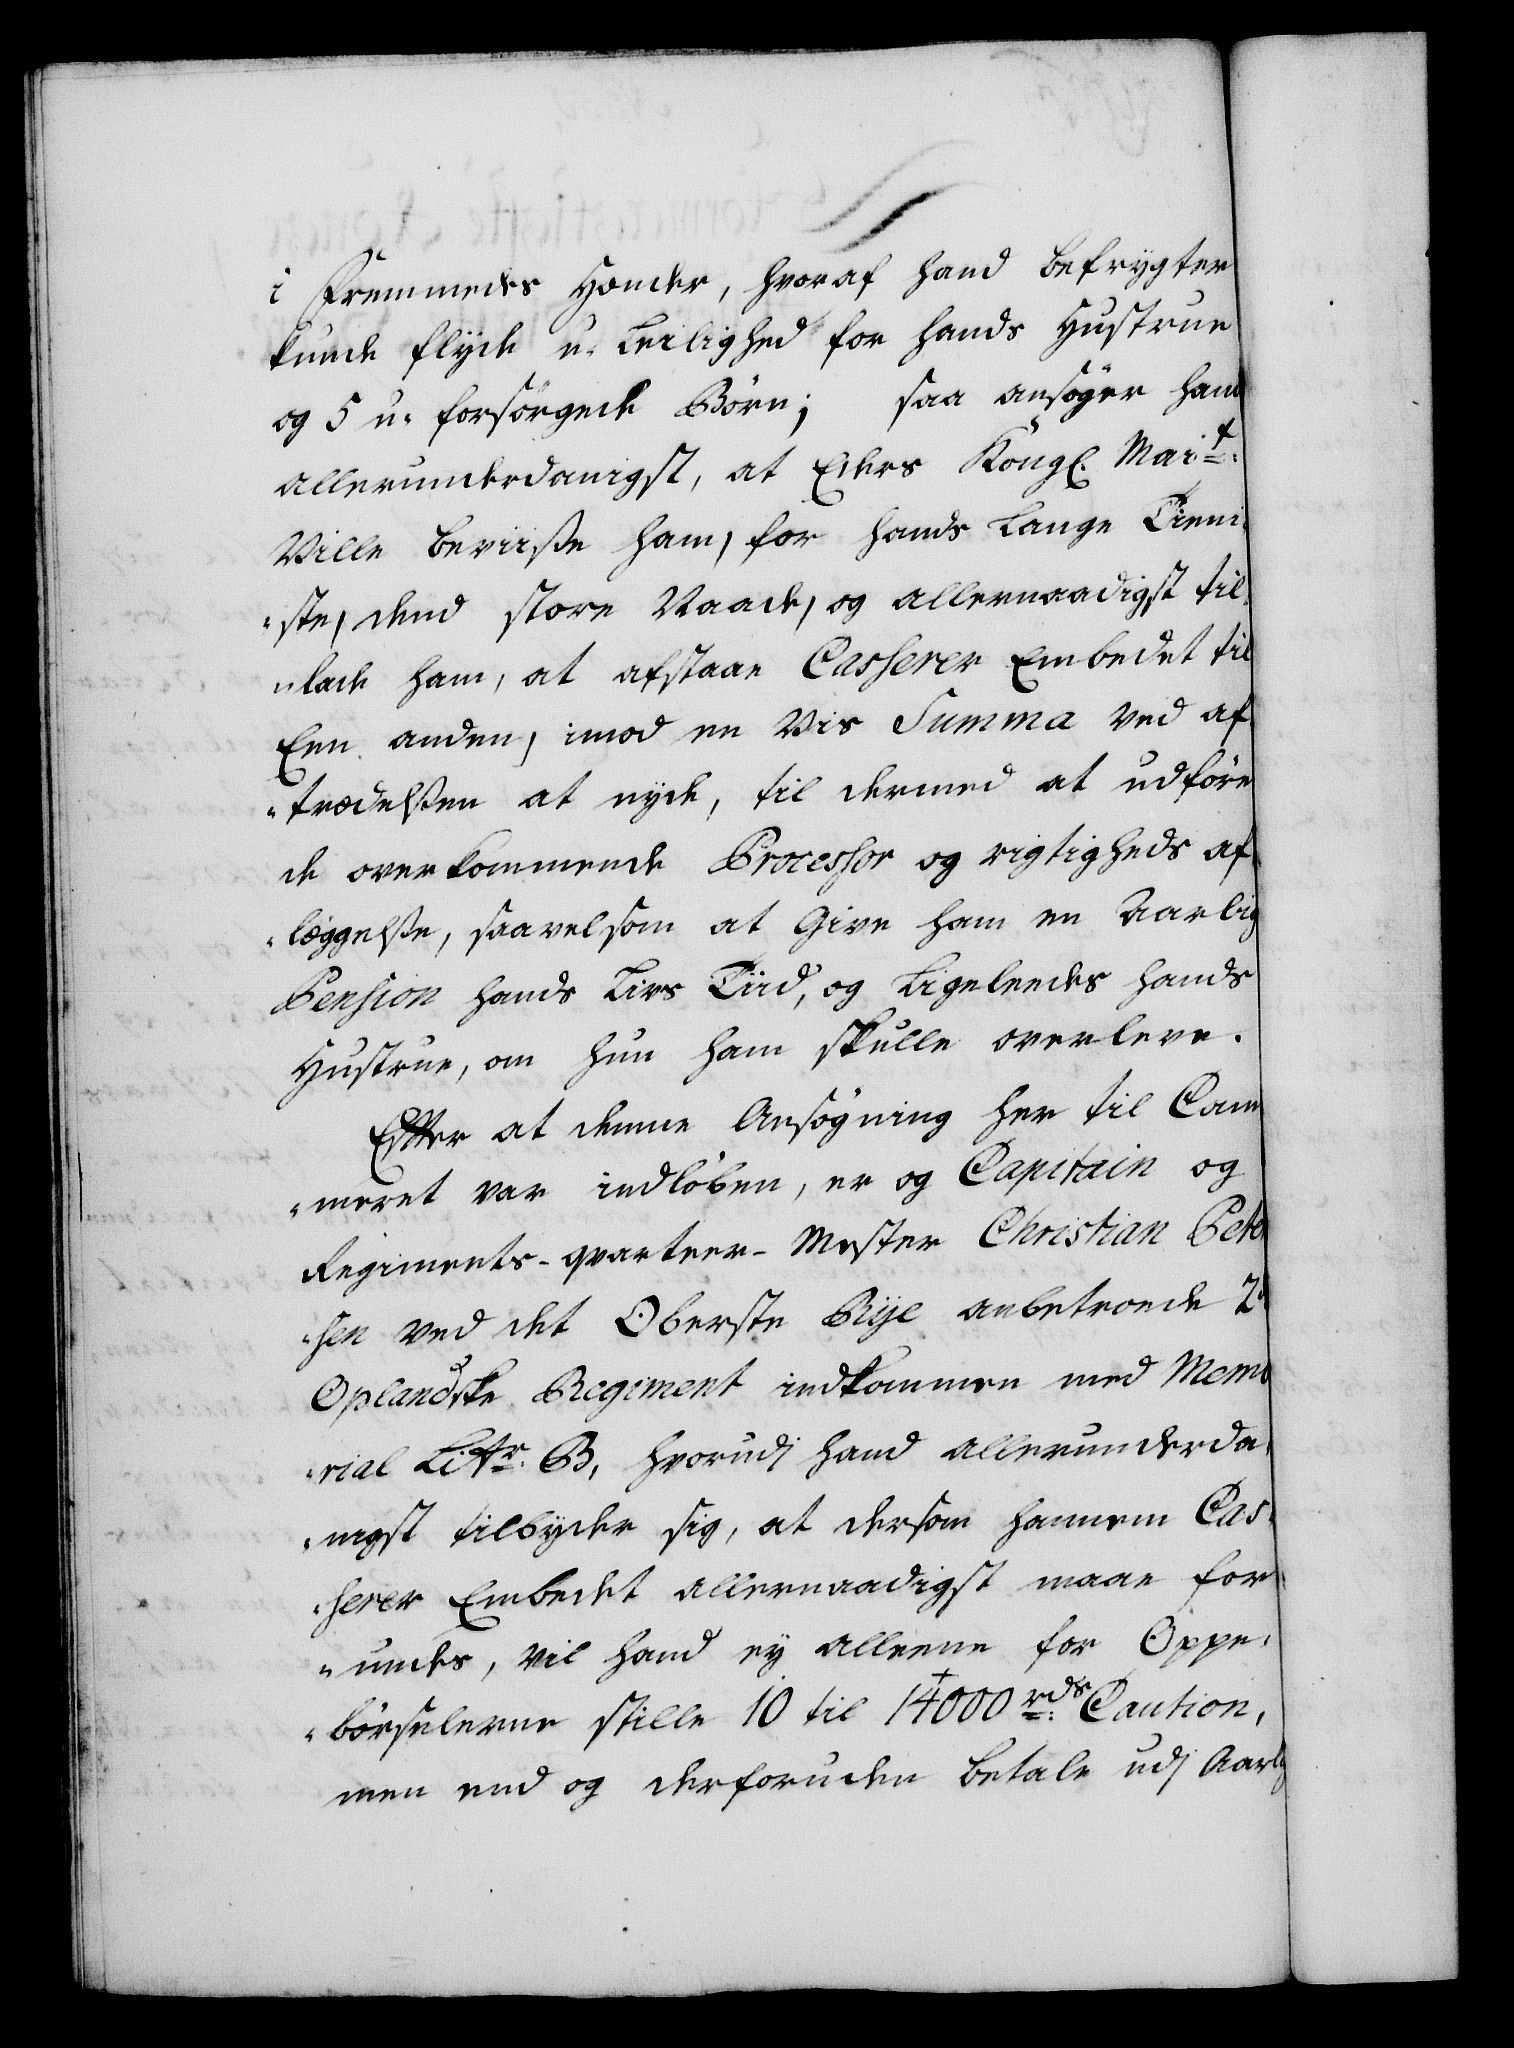 i Fremmedes Hænder, hvoraf hand befrygter
kunde flyde u-Leilighed for hands Hustrue
og 5 u-forsørgede Børn; saa ansøger hand
allerunderdanigst, at Eders Kongl. Mait:
Ville beviiße ham, for hands Lange Tieni-
-ste, dend store Naade, og allernaadigst til-
-lade ham, at afstaae Casserer Embedet til
Een anden, imod en Vis Summa ved af-
-trædelßen at nyde, til dermed at udføre
de overkommende Processer og rigtigheds af-
-læggelße, saavelsom at Give ham en Aarlig
Pension hands Livs Tiid, og Ligeleedes hands
Hustrue, om hun ham skulle overleve.
Efter at denne Ansøgning her til Cam-
-meret var indløben, er og Capitain og
Regiments-qvarteer-Mester Christian Peter-
-sen ved det Oberste Rÿe anbetroede 2d
Oplandske Regiment indkommen med Memo-
-rial Littr. B, hvorudj hand allerunderda-
-nigst tilbyder sig, at dersom hannem Cas-
-serer Embedet allernaadigst maae for-
-undes, vil hand ey alleene for Oppe-
-børselerne stille 10 til 14000 rdr. Caution,
men end og derforuden betale udj Aarlig